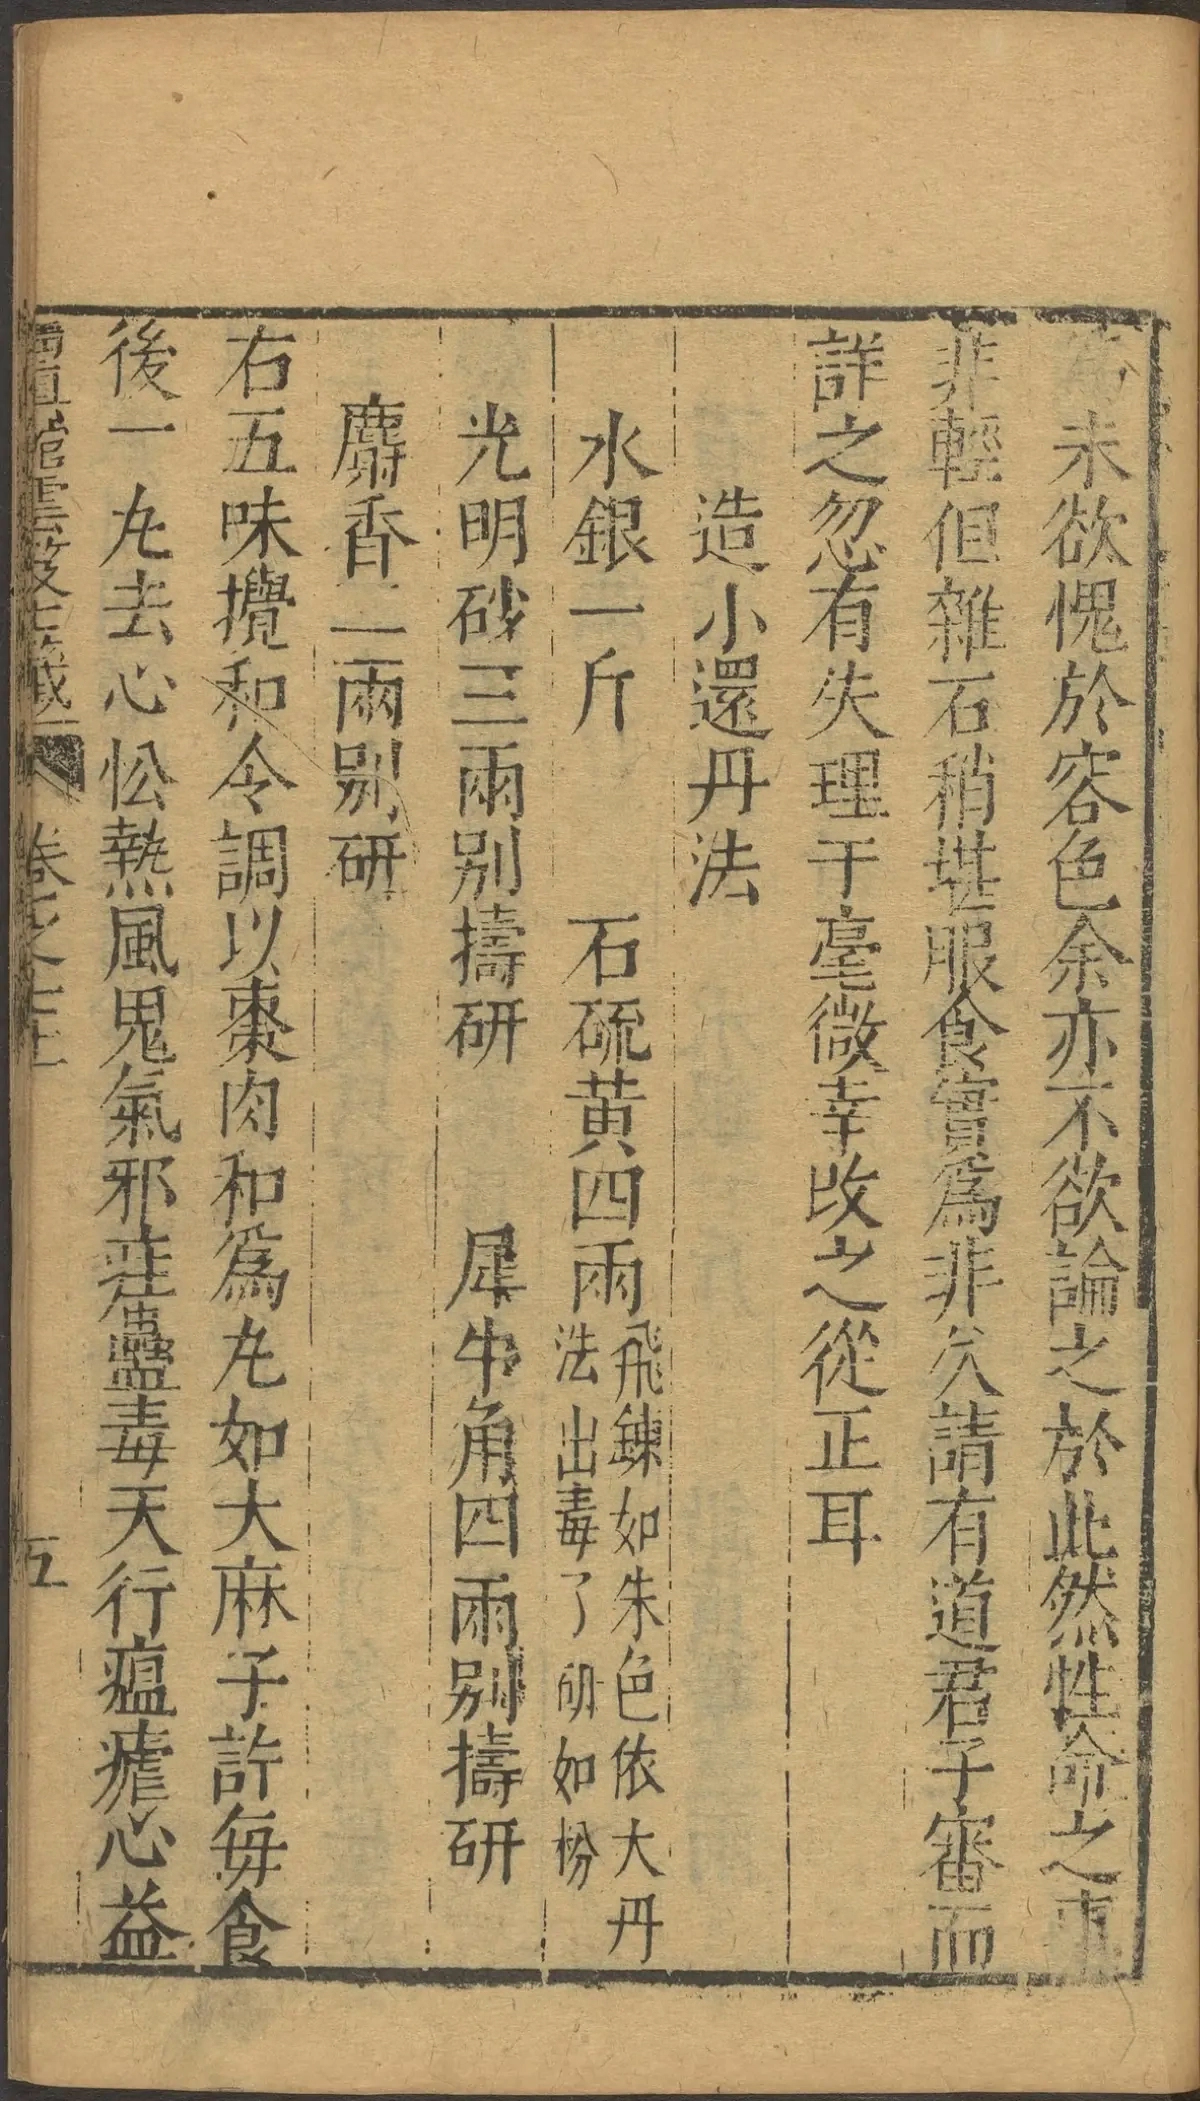 未欲愧於容色余亦不欲論之於此然性命之事
非輕但雜石稍堪服食實爲非矣請有道君子審而
詳之忽有失理于毫微幸改之從正耳
造小還丹法
水銀一斤　石硫黄四兩飛鍊如朱色依大丹
法出毒了研如粉
光明砂三兩別擣研　犀牛角四兩別擣研
麝香二兩別研
右五味攪和令調以棗肉和爲丸如大麻子許每食
後一丸去心忪熱風鬼氣邪疰蠱毒天行瘟瘧心益
卷之七十 五